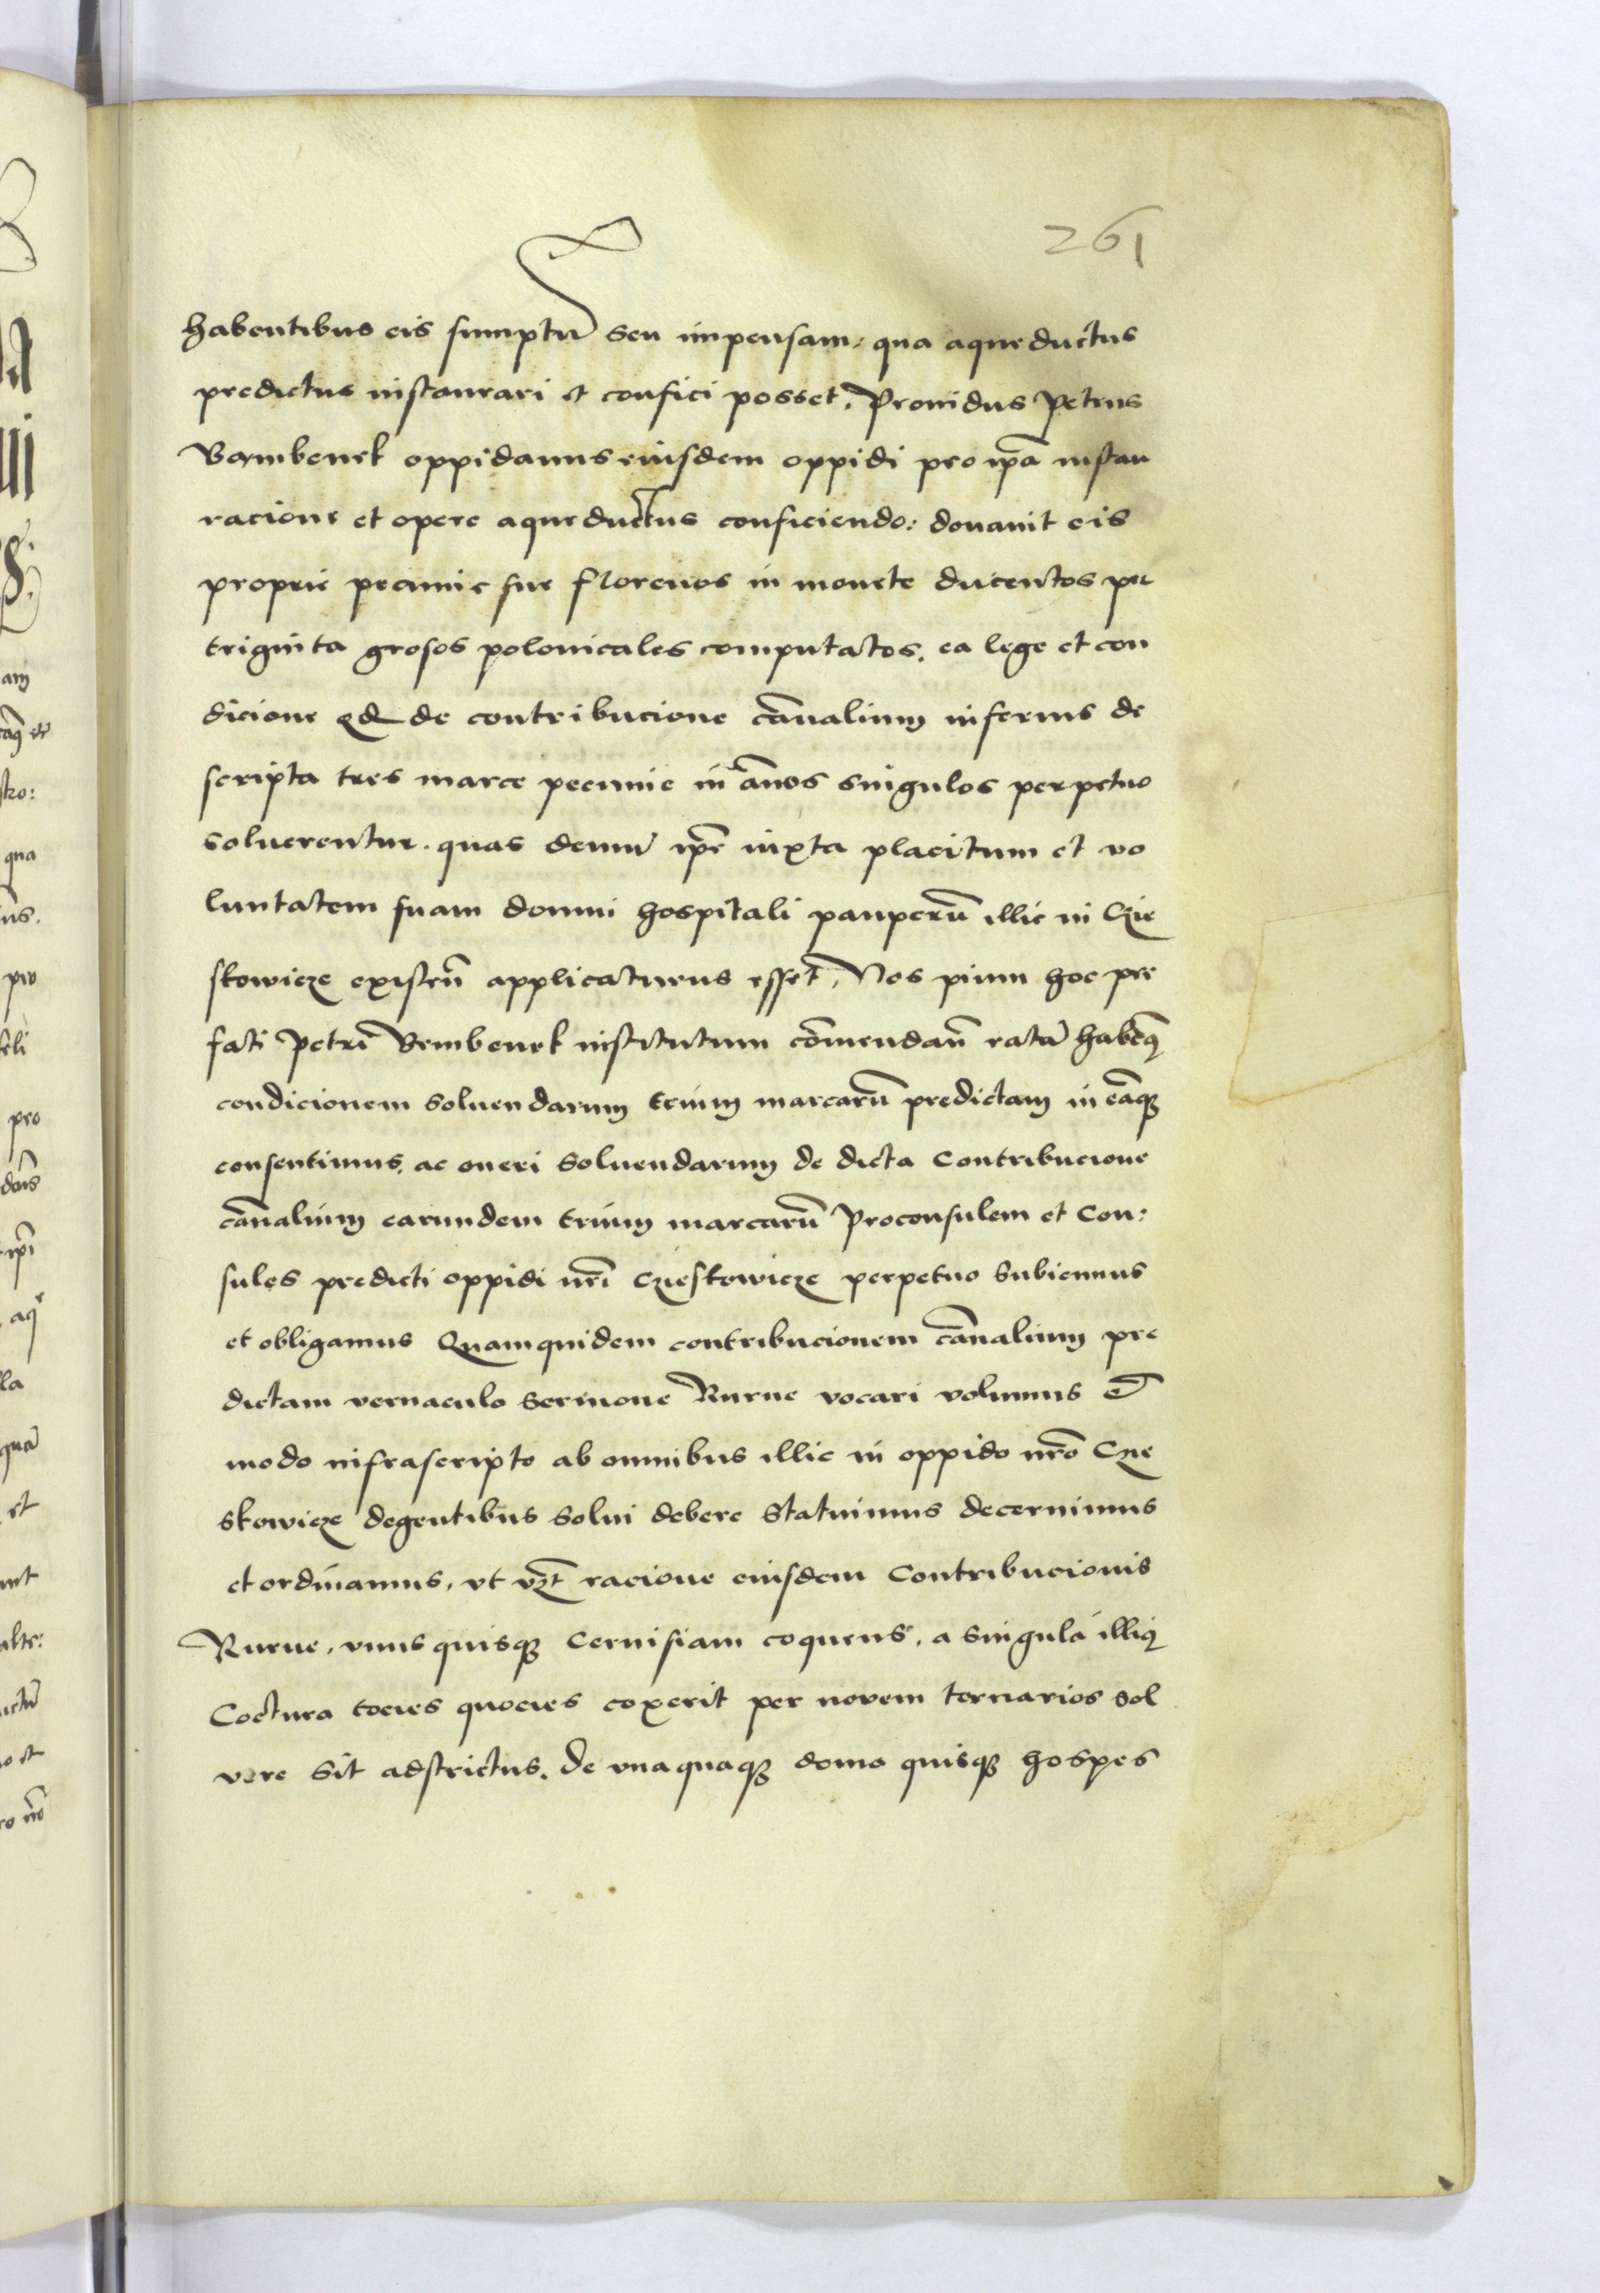 261
habentibus eis sumptū seu impensam, qua aqueductus
predictus instaurari et confici posset. Prouidus Petrus
Bembenek oppidanus eiusdem oppidi pro ipā instau
racione et opere aqueductus conficiendo: donauit eis
proprie pecunie sue florenos in monete ducentos per
triginta grosos polonicales computatos. ea lege et con
dicione qd de contribucione cānalium inferius de
scripta tres marce pecunie in ānos singulos perpetuo
soluerentur. quas demū ipē iuxta placitum et vo
luntatem suam domui hospitali pauperū illic in Czie
skowicze existeñ applicaturus esset. Nos pium hoc pre
fati Petri Bembenek institutum cōmendañ ratā habeq
condicionem soluendarum trium marcarū predictam in eāque
consentimus, ac oneri soluendarum de dicta Contribucione
cānalium earundem trium marcarū Proconsulem et Con:
sules predicti oppidi nrī Czieskowicze perpetuo subiemus
et obligamus Quamquidem contribucionem cānalium pre
dictam vernaculo sermone Rurne vocari volumus et
modo infrascripto ab omnibus illic in oppido nrō Czie
skowicze degentibus solui debere statuimus decernimus
et ordinamus, vt vzt racione eiusdem Contribucionis
Rurne, vnusquisque Ceruisiam coquens, a singula illiq
Coctura tocies quocies coxerit per novem ternarios sol
vere sit adstrictus. de vnaquaque domo quisque hospes